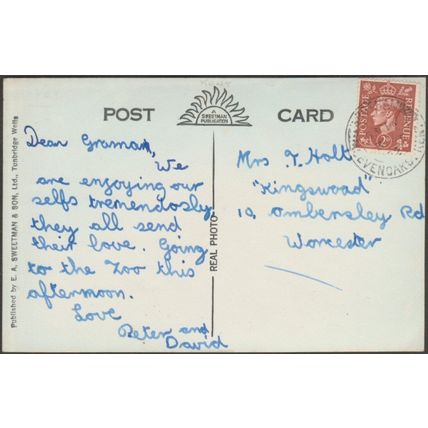 POST CARD
A
SWEETMAN
PUBLICATION
Dear Graman,
We
are enjoying our
selfs tremendosly
they all send
their love. Going
to the Zoo this
afternoon.
Love
Peter and
David
Mrs T. Holt
"Kingswood"
19, Ombersley Rd
Worcester
POSTAGE
REVENUE
2D
SEVENOAKS, KENT
REAL PHOTO
Published by E. A. SWEETMAN & SON, Ltd., Tunbridge Wells